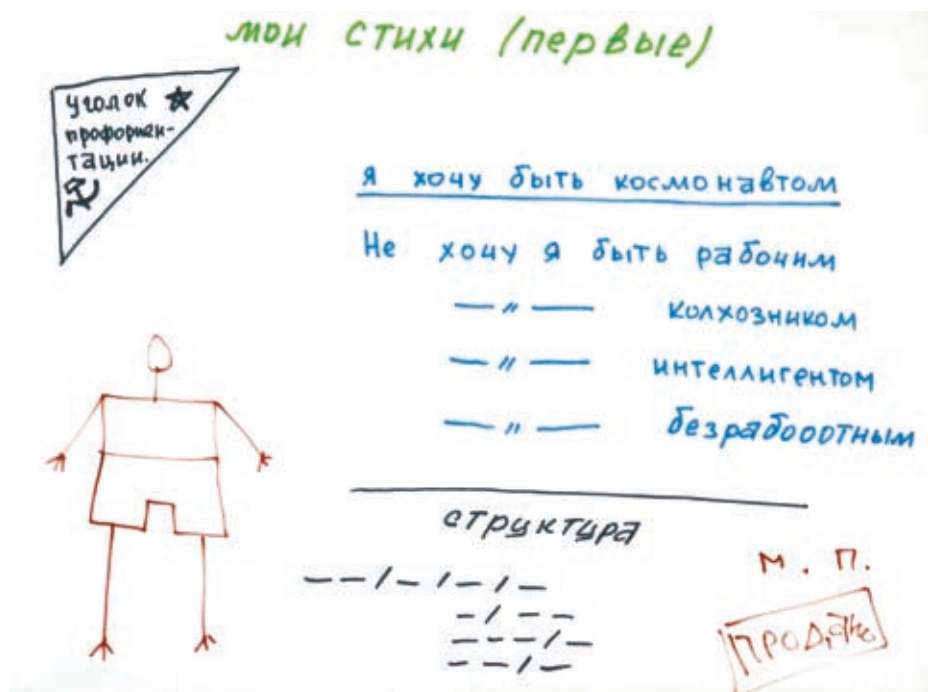 мои стихи (первые)
уголок
профориен-
тации.
Я хочу быть космонавтом
Не хочу я быть рабочим
— " — колхозником
— " — интеллигентом
— " — безрабооотным
структура
— — / — / — / —
— / — —
— — — / —
— — / —
М. П.
ПРОДАНО